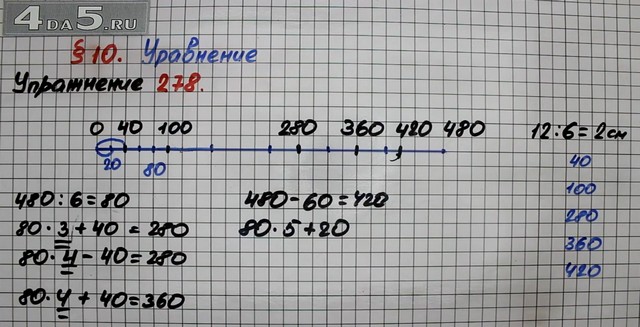 4DA5.RU
§10. Уравнение
Упражнение 278.
0 40 100 280 360 420 480 12:6=2см
20 80
40
100
280
360
420
480:6=80
80·3+40=280
80·4-40=280
80·4+40=360
480-60=420
80·5+20